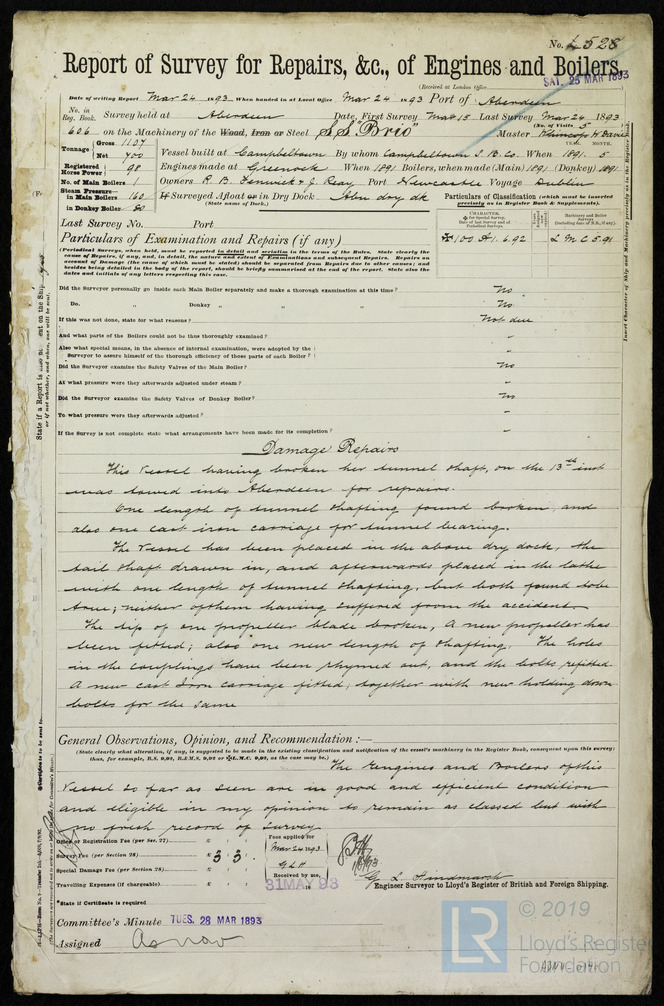 No. 4528
Report of Survey for Repairs, &c., of Engines and Boilers.
(Received at London Office
SAT. 25 MAR 1893
Date of writing Report Mar 24 1893 When handed in at Local Office Mar 24 1893 Port of Aberdeen
No. in Reg. Book. Survey held at Aberdeen Date, First Survey Mar 15 Last Survey Mar 24 1893
(No. of Visits 5)
606 on the Machinery of the Wood, Iron or Steel S.S. "Brio" Master
Tonnage Gross 1107 Net 700
Vessel built at Campbeltown By whom Campbeltown S. B. Co. When 1891 . 5
YEAR. MONTH.
Registered Horse Power 98
Engines made at Greenock When 1891 Boilers, when made (Main) 1891 (Donkey) 1891
No. of Main Boilers 1
Owners R. B. Fenwick & J. Reay Port Newcastle Voyage Dublin
Steam Pressure in Main Boilers 160
in Donkey Boiler 80
If Surveyed Afloat or in Dry Dock Abn dry dk
(State name of Dock.)
Particulars of Classification (which must be inserted precisely as in Register Book & Supplements).
Last Survey No. Port
100 A 1. 6.92 L M C 5.91
Particulars of Examination and Repairs (if any)
(Periodical Surveys, when held, must be reported in detail and notation in the terms of the Rules. State clearly the
cause of Repairs, if any, and, in detail, the nature and extent of Examinations and subsequent Repairs. Repairs on
account of Damage (the cause of which must be stated) should be separated from Repairs due to other causes; and
besides being detailed in the body of the report, should be briefly summarised at the end of report. State also the
dates and initials of any letters respecting this case.
Did the Surveyor personally go inside each Main Boiler separately and make a thorough examination at this time? No
Do. " Donkey " " " No
If this was not done, state for what reasons? Not due
And what parts of the Boilers could not be thus thoroughly examined? "
Also what special means, in the absence of internal examination, were adopted by the
Surveyor to assure himself of the thorough efficiency of those parts of each Boiler? "
Did the Surveyor examine the Safety Valves of the Main Boiler? No
At what pressure were they afterwards adjusted under steam? "
Did the Surveyor examine the Safety Valves of Donkey Boiler? No
To what pressure were they afterwards adjusted? "
If the Survey is not complete state what arrangements have been made for its completion? "
Damage Repairs
This Vessel having broken her tunnel shaft, on the 13th inst
was towed into Aberdeen for repairs.
One length of tunnel shafting found broken, and
also one cast iron carriage for tunnel bearing.
The Vessel has been placed in the above dry dock, the
tail shaft drawn in, and afterwards placed in the lathe
with one length of tunnel shafting, but both found to be
true; neither of them having suffered from the accident.
The tip of one propeller blade broken, A new propeller has
been fitted; also one new length of shafting. The holes
in the couplings have been rhymed out, and the bolts refitted.
A new cast Iron carriage fitted; together with new holding down
bolts for the same
General Observations, Opinion, and Recommendation :—
(State clearly what alteration, if any, is suggested to be made in the existing classification and notification of the vessel's machinery in the Register Book, consequent upon this survey;
thus, for example, B.S. 9,92, B.&M.S. 9,92 or L.M.C. 9,92, as the case may be.)
The Engines and Boilers of this
Vessel so far as seen are in good and efficient condition
and eligible in my opinion to remain as classed but with
no fresh record of Survey
Office or Registration Fee (per Sec. 27) £ : :
Survey Fee (per Section 28) £ 3 : 3 :
Special Damage Fee (per Section 28) £ : :
Travelling Expenses (if chargeable) £ : :
Fees applied for
Mar 24 1893
G L H
Received by me,
31 MAY 93
G. L. Hindmarsh
Engineer Surveyor to Lloyd's Register of British and Foreign Shipping.
*State if Certificate is required
Committee's Minute TUES. 28 MAR 1893
Assigned As now
LR © 2019
Lloyd's Register
Foundation